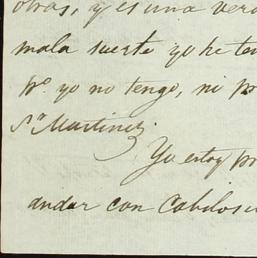 otras, y es una verd
mala suerte yo he ten
pº yo no tengo, ni p
Sr Martinez
Yo estoy pr
andar con Cabilos